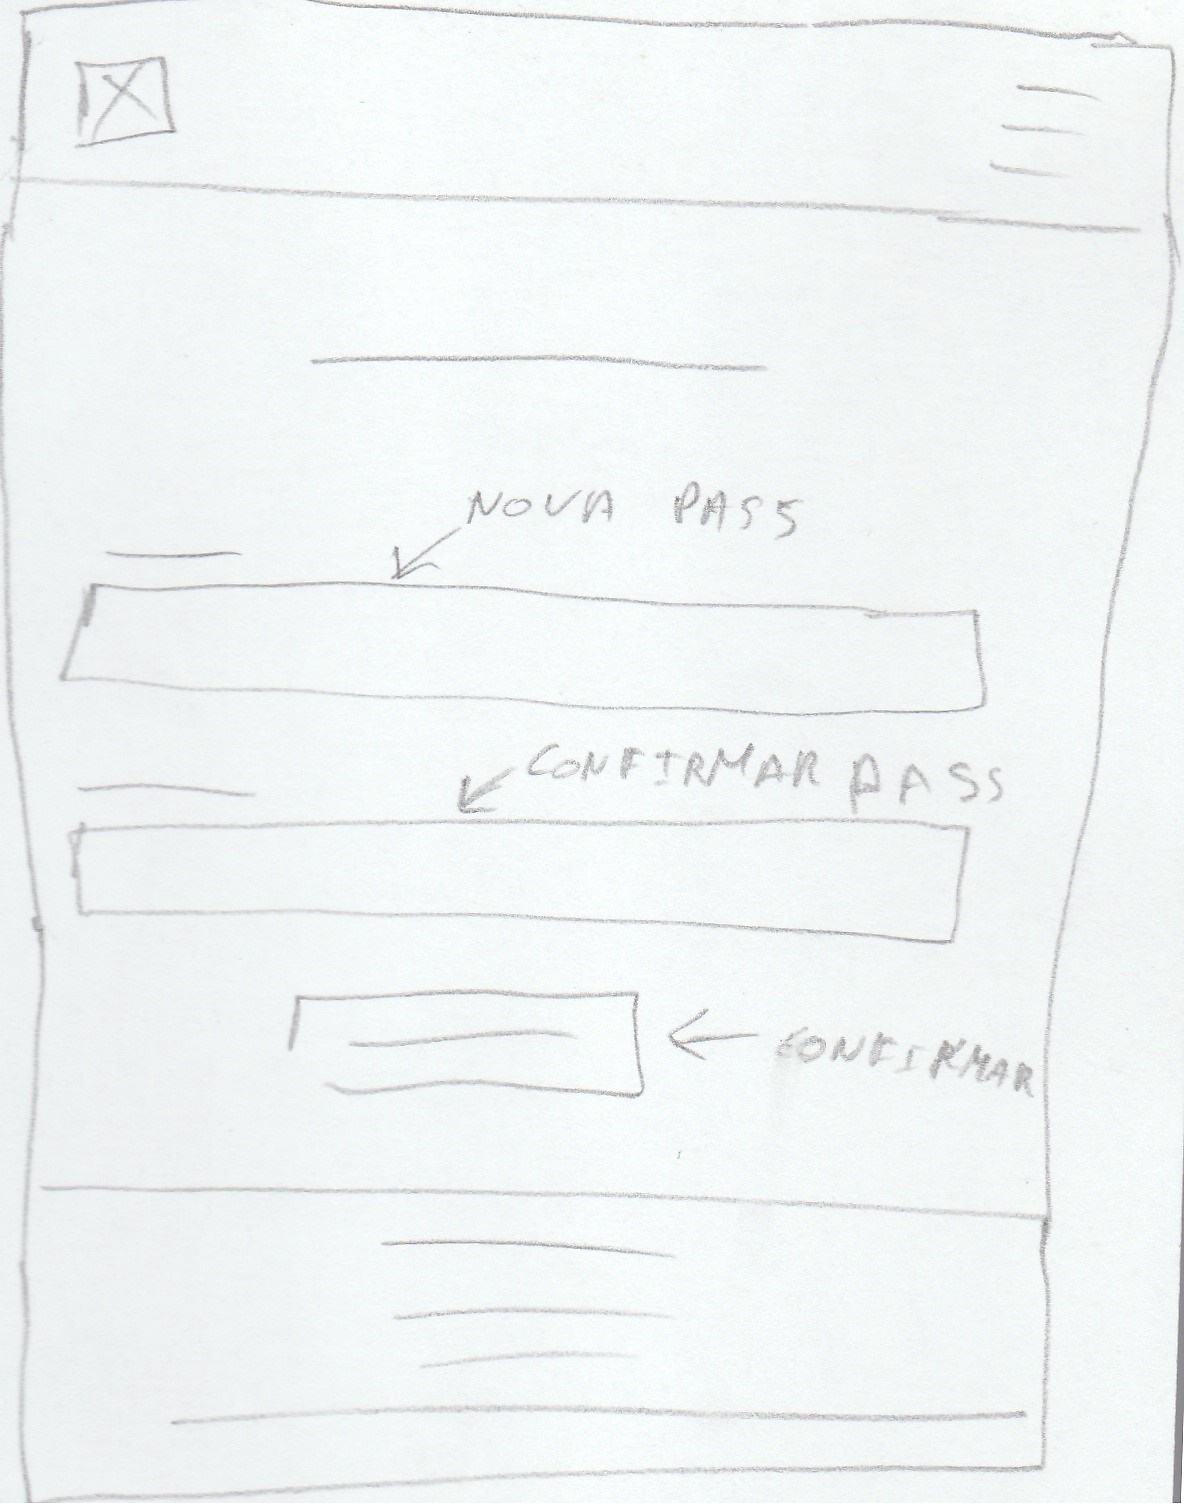 NOVA PASS
CONFIRMAR PASS
CONFIRMAR